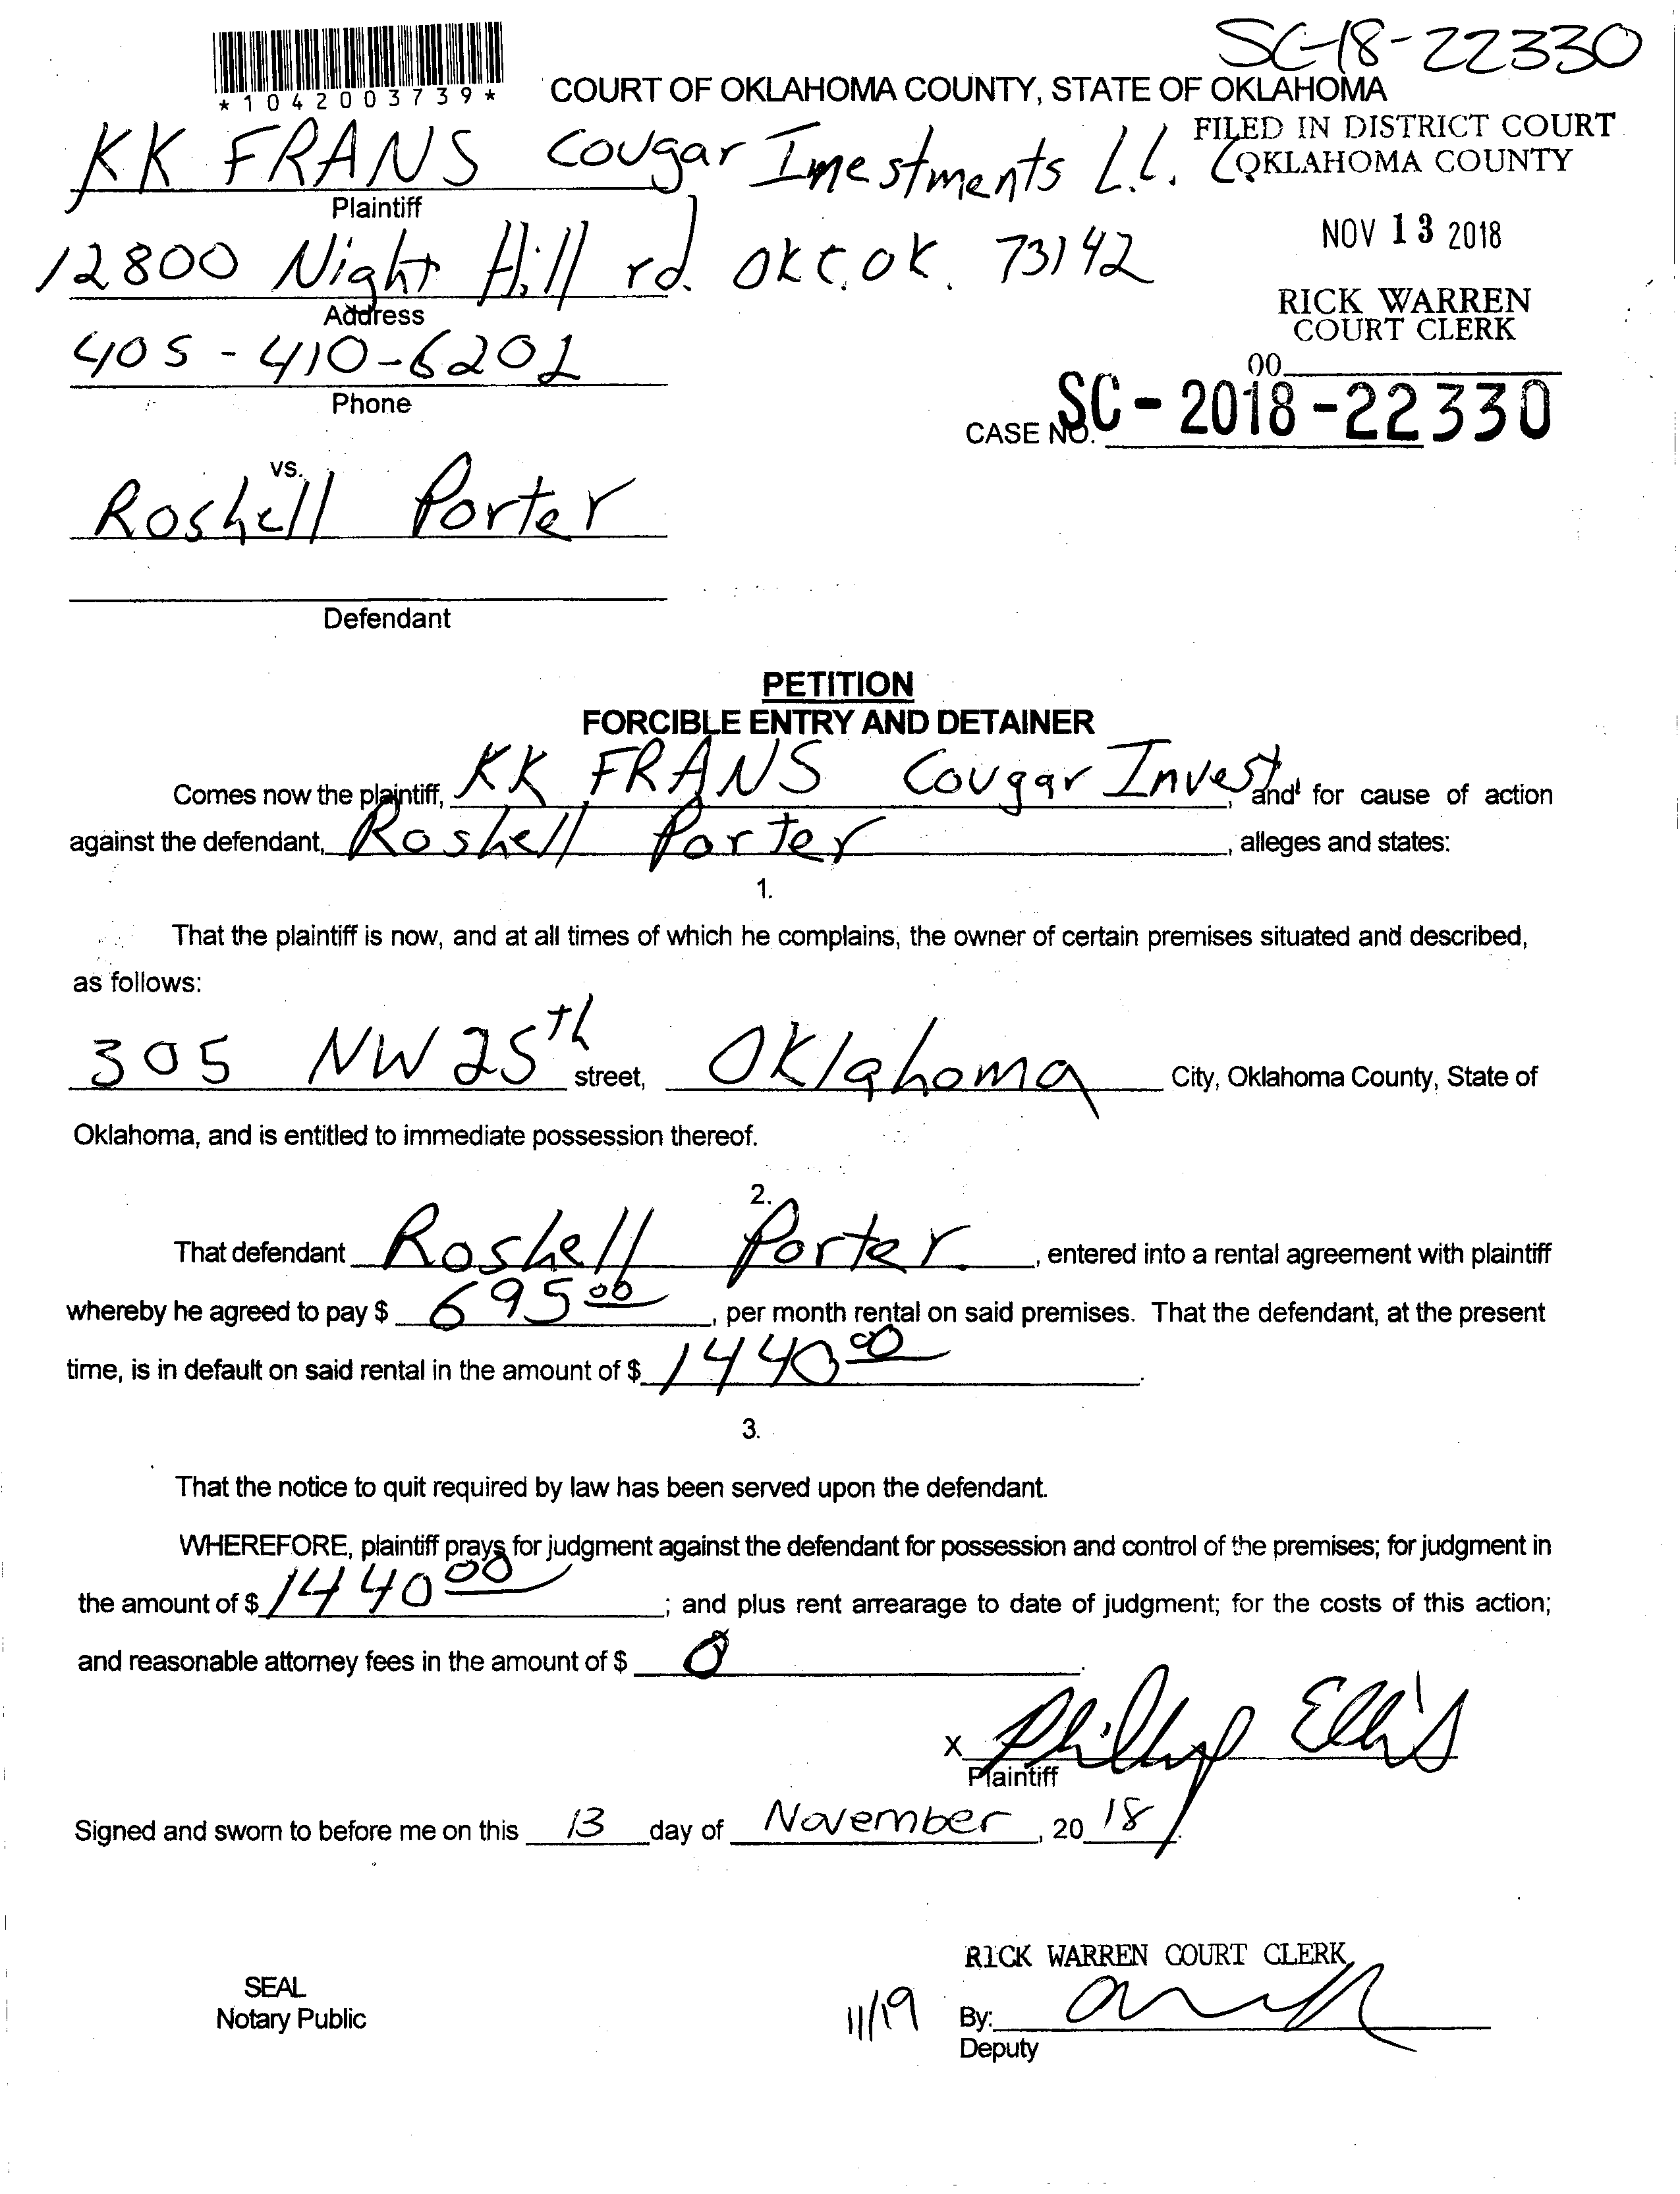 SC-18-22330
*1042003739*
COURT OF OKLAHOMA COUNTY, STATE OF OKLAHOMA
FILED IN DISTRICT COURT
OKLAHOMA COUNTY
KK FRANS Cougar Imestments L.L.C
Plaintiff
NOV 13 2018
12800 Night Hill rd. OKC. OK. 73142
Address
RICK WARREN
COURT CLERK
405-410-6201
Phone
00
CASE NO. SC-2018-22330
vs.
Roshell Porter
Defendant
PETITION
FORCIBLE ENTRY AND DETAINER
Comes now the plaintiff, KK FRANS Cougar Invest, and for cause of action
against the defendant, Roshell Porter, alleges and states:
1.
That the plaintiff is now, and at all times of which he complains, the owner of certain premises situated and described,
as follows:
305 NW 25th street, Oklahoma City, Oklahoma County, State of
Oklahoma, and is entitled to immediate possession thereof.
2.
That defendant Roshell Porter, entered into a rental agreement with plaintiff
whereby he agreed to pay $ 695 00, per month rental on said premises. That the defendant, at the present
time, is in default on said rental in the amount of $ 1440 00.
3.
That the notice to quit required by law has been served upon the defendant.
WHEREFORE, plaintiff prays for judgment against the defendant for possession and control of the premises; for judgment in
the amount of $ 1440 00; and plus rent arrearage to date of judgment; for the costs of this action;
and reasonable attorney fees in the amount of $ 0.
x Phillip Ellis
Plaintiff
Signed and sworn to before me on this 13 day of November, 20 18.
RICK WARREN COURT CLERK
SEAL
Notary Public
11/19 By:
Deputy